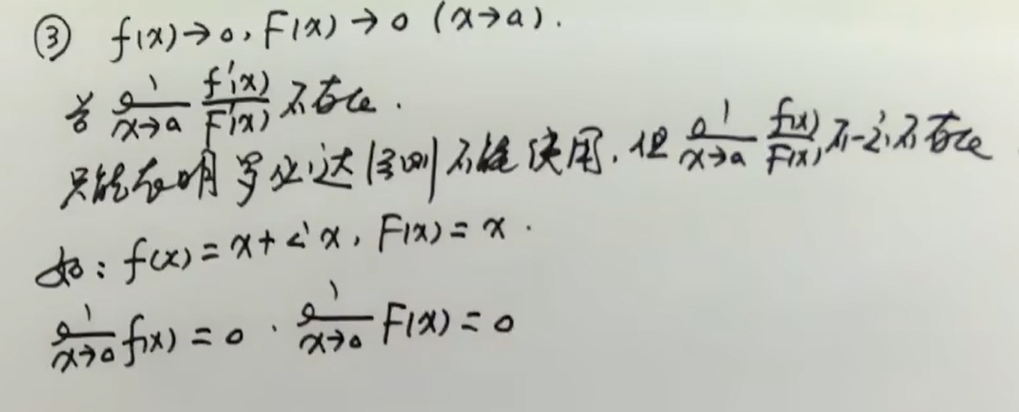 ③ f(x)→0, F(x)→0 (x→a).
若 lim x→a f'(x)/F'(x) 不存在.
只能表明罗必达法则不能使用, 但 lim x→a f(x)/F(x) 不一定不存在
如: f(x) = x + x, F(x) = x.
lim x→0 f(x) = 0. lim x→0 F(x) = 0